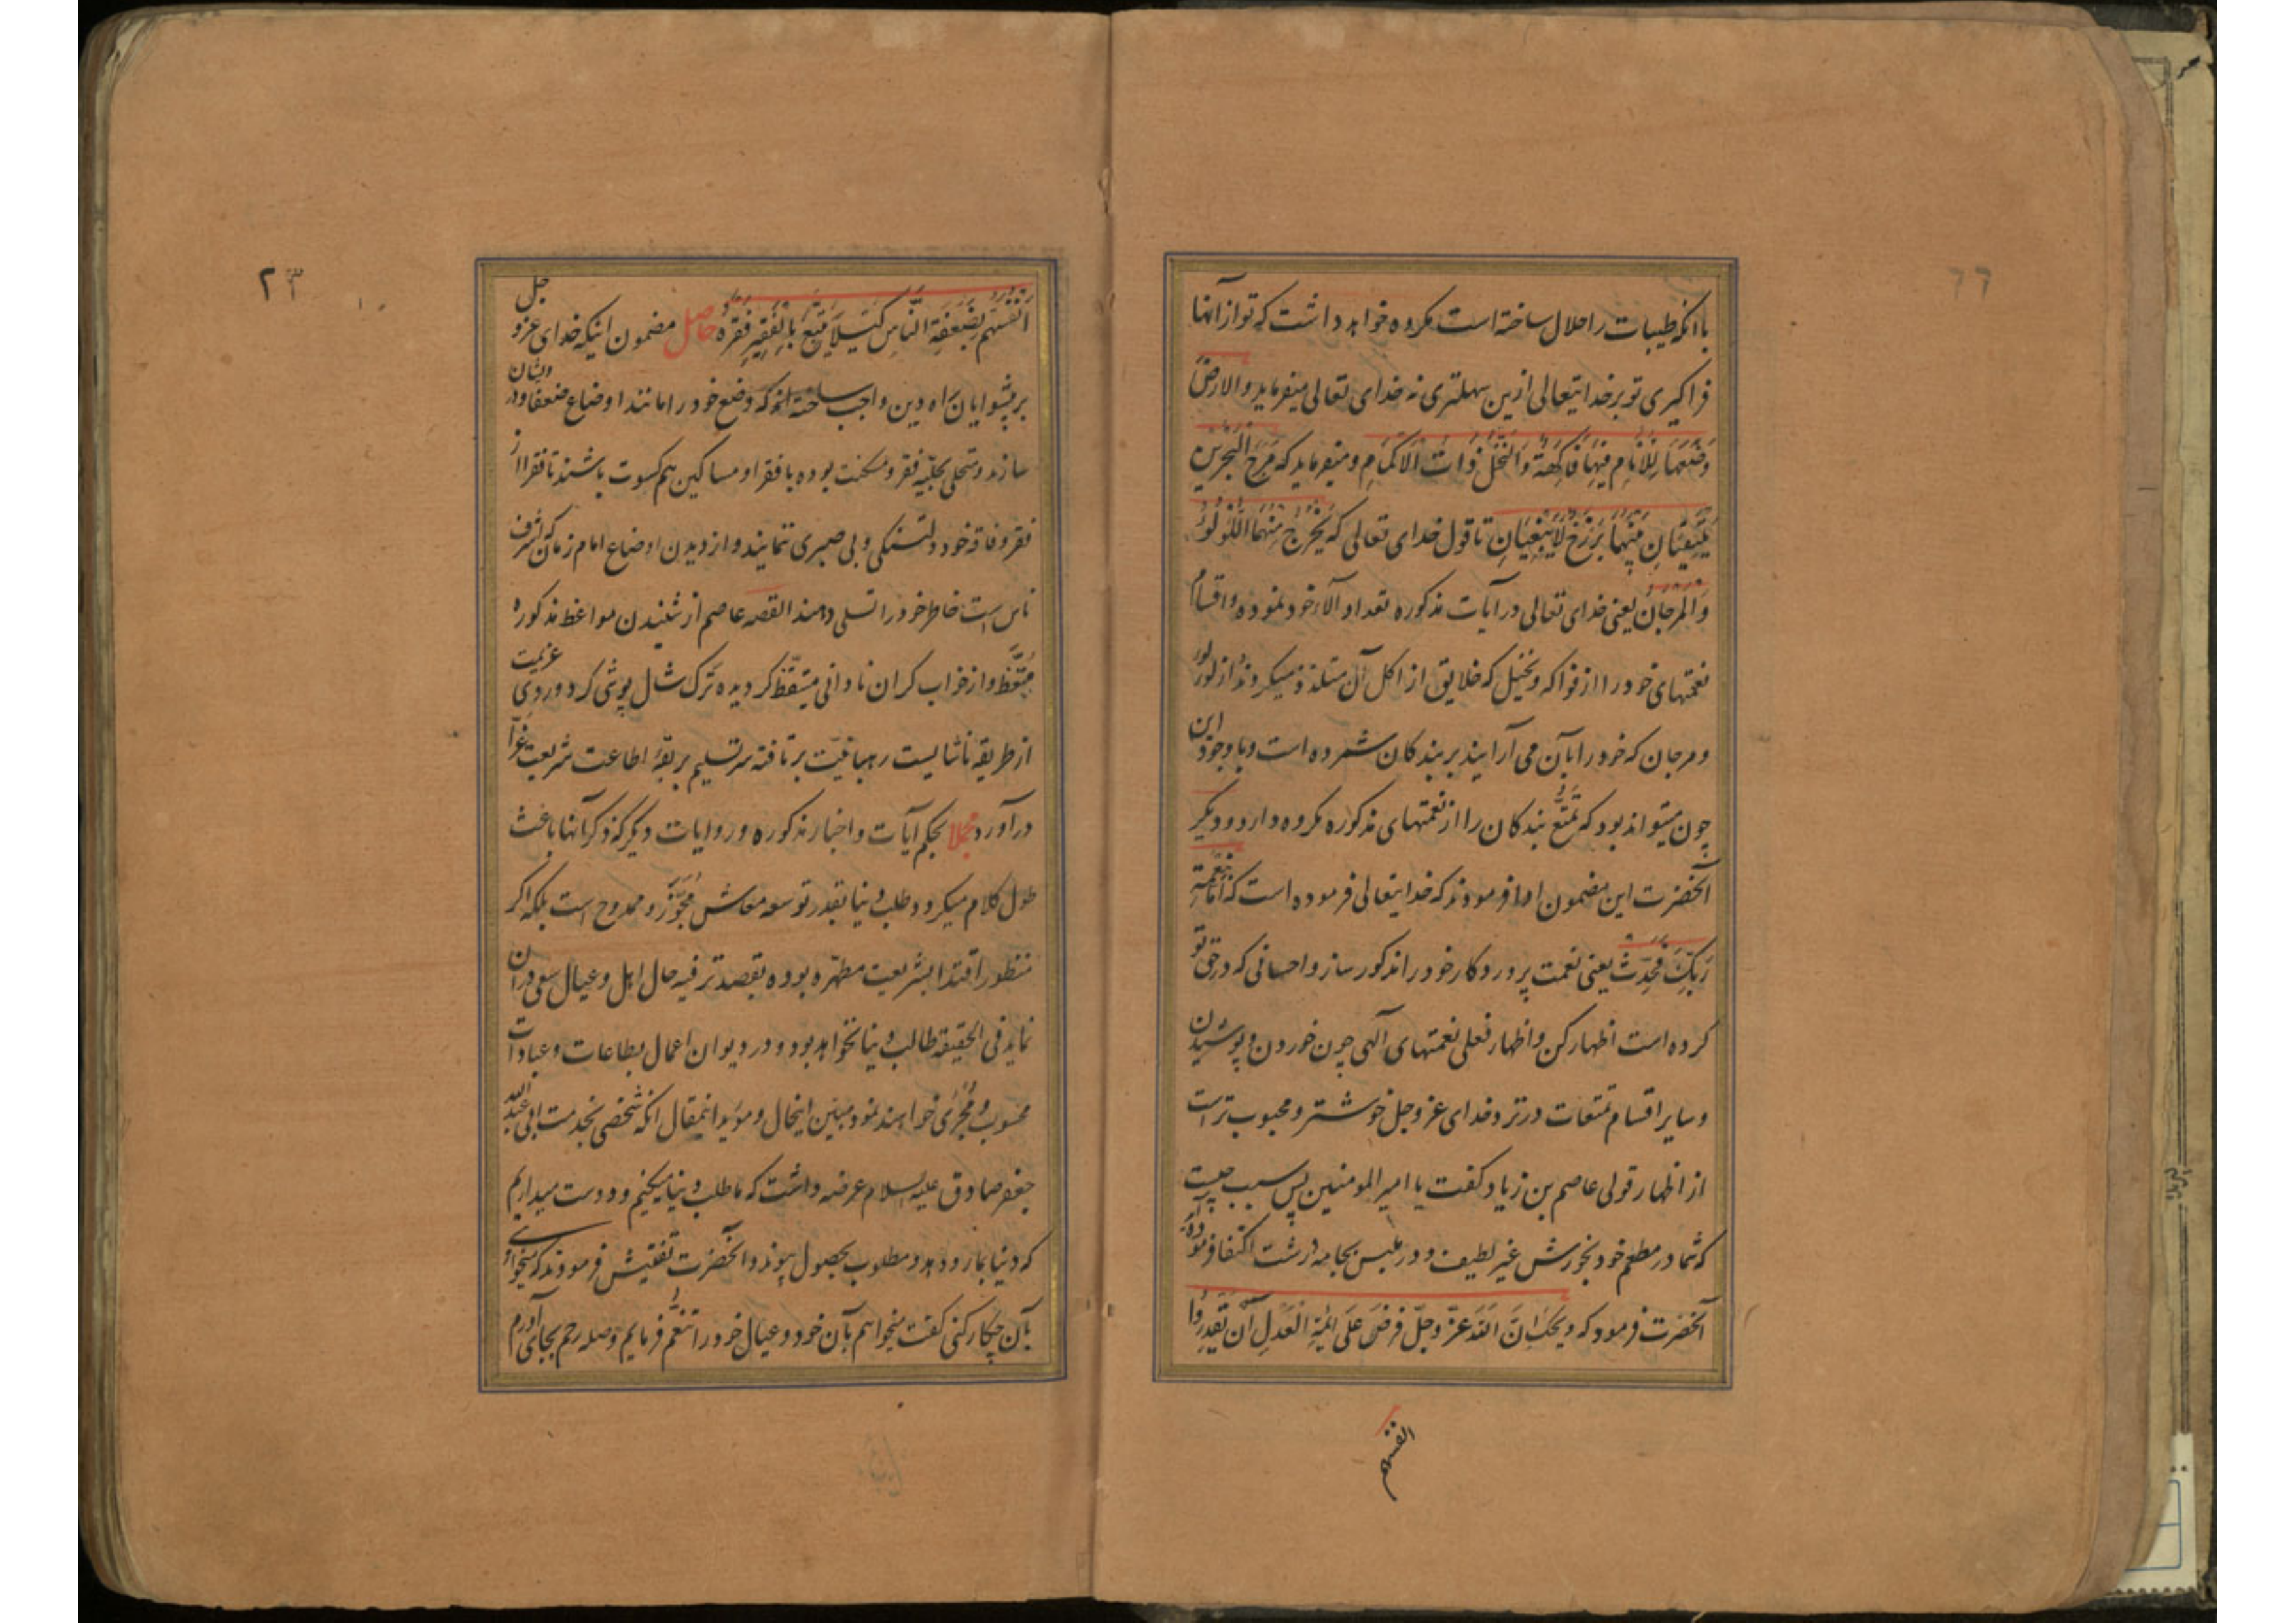 باانکه طیبات را حلال ساخته است مکروه خواهد داشت که تو از آنها
فراگیری تو بر خدایتعالی ازین سهلتری نه خدای تعالی میفرماید والارض
وَضَعَهَا لِلْاَنامِ فِیهَا فَاکِهَةٌ وَالنَّخْلُ ذَاتُ الْاَکْمَامِ و میفرماید که مَرَجَ الْبَحْرَیْنِ
یَلْتَقِیَانِ بَیْنَهُمَا بَرْزَخٌ لَایَبْغِیَانِ تا قول خدای تعالی که یَخْرُجُ مِنْهُمَا اللُّؤْلُؤُ
وَالْمَرْجَانُ یعنی خدای تعالی در آیات مذکوره تعداد آلاء خود نموده و اقسام
نعمتهای خود را از فواکه و نخیل که خلایق از اکل آن متلذذ میکردند و از لؤلؤ
و مرجان که خود را بآن می آرایند بر بندکان شمرده است و با وجود این
چون میتواند بود که تَمَتُّع بندکان را از نعمتهای مذکوره مکروه دارد و دیگر
آنحضرت این مضمون ادا فرمودند که خدایتعالی فرموده است که اَمَّا بِنِعْمَةِ
رَبِّکَ فَحَدِّثْ یعنی نعمت پروردکار خود را مذکور ساز و احسانی که در حق تو
کرده است اظهار کن و اظهار فعلی نعمتهای آلهی چون خوردن و پوشیدن
و سایر اقسام تمتعات در نزد خدای عز وجل خوشتر و محبوب تر است
از اظهار قولی عاصم بن زیاد کفت یا امیر المومنین پس سبب چیست
که شما در مطعم خود بخورش غیر لطیف و در ملبس بجامه درشت اکتفا فرموده اید
آنحضرت فرمود که ویحک اِنَّ اللّهَ عَزَّ وَجَلَّ فَرَضَ عَلَی اَئِمَّةِ الْعَدْلِ اَنْ یُقَدِّرُوا
انفسهم
٢٣
اَنْفُسَهُمْ بِضَعَفَةِ النَّاسِ کَیْلَا یَتَبَیَّغَ بِالْفَقِیرِ فَقْرُهُ حاصل مضمون اینکه خدای عز و جل
بر پیشوایان راه دین واجب ساخته انکه وضع خود را مانند اوضاع ضعفا و درویشان
سازند و متحلی بحلّیه فقر و مسکنت بوده با فقرا و مساکین هم کسوت باشند تا فقرا از
فقر و فاقه خود دلتنکی و بی صبری ننمایند و از دیدن اوضاع امام زمان که اشرف
ناس است خاطر خود را تسلی دهند القصه عاصم از شنیدن مواعظ مذکوره
مُتَّعِظ و از خواب کران نادانی متیقّظ کردیده ترک شال پوشی کرد و روی عزیمت
از طریقه ناشایست رهبانیّت برتافته سر تسلیم بربقهٔ اطاعت شریعت غرّا
درآورد مجملا بحکم آیات و اخبار مذکوره و روایات دیگر که ذکر آنها باعث
طول کلام میکردد طلب دنیا بقدر توسعه معاش مُجَوَّز و ممدوح است بلکه اکر
منظور اقتدا بشریعت مطهّره بوده بقصد ترفیه حال اهل و عیال سعی در آن
نماید فی الحقیقه طالب دنیا نخواهد بود و در دیوان اعمال بطاعات و عبادات
محسوب و مُجْری خواهند نمود مبیّن اینحال و مؤید اینمقال انکه شخصی بخدمت ابی عبدالله
جعفر صادق علیه السلام عرضه داشت که ما طلب دنیا میکنیم و دوست میداریم
که دنیا بما رو دهد و مطلوب بحصول پیوندد آنحضرت تفتیش فرمودند که میخواهی
بآن چکار کنی کفت میخواهم بآن خود و عیال خود را تَنَعُّم فرمایم و صله رحم بجای آورم